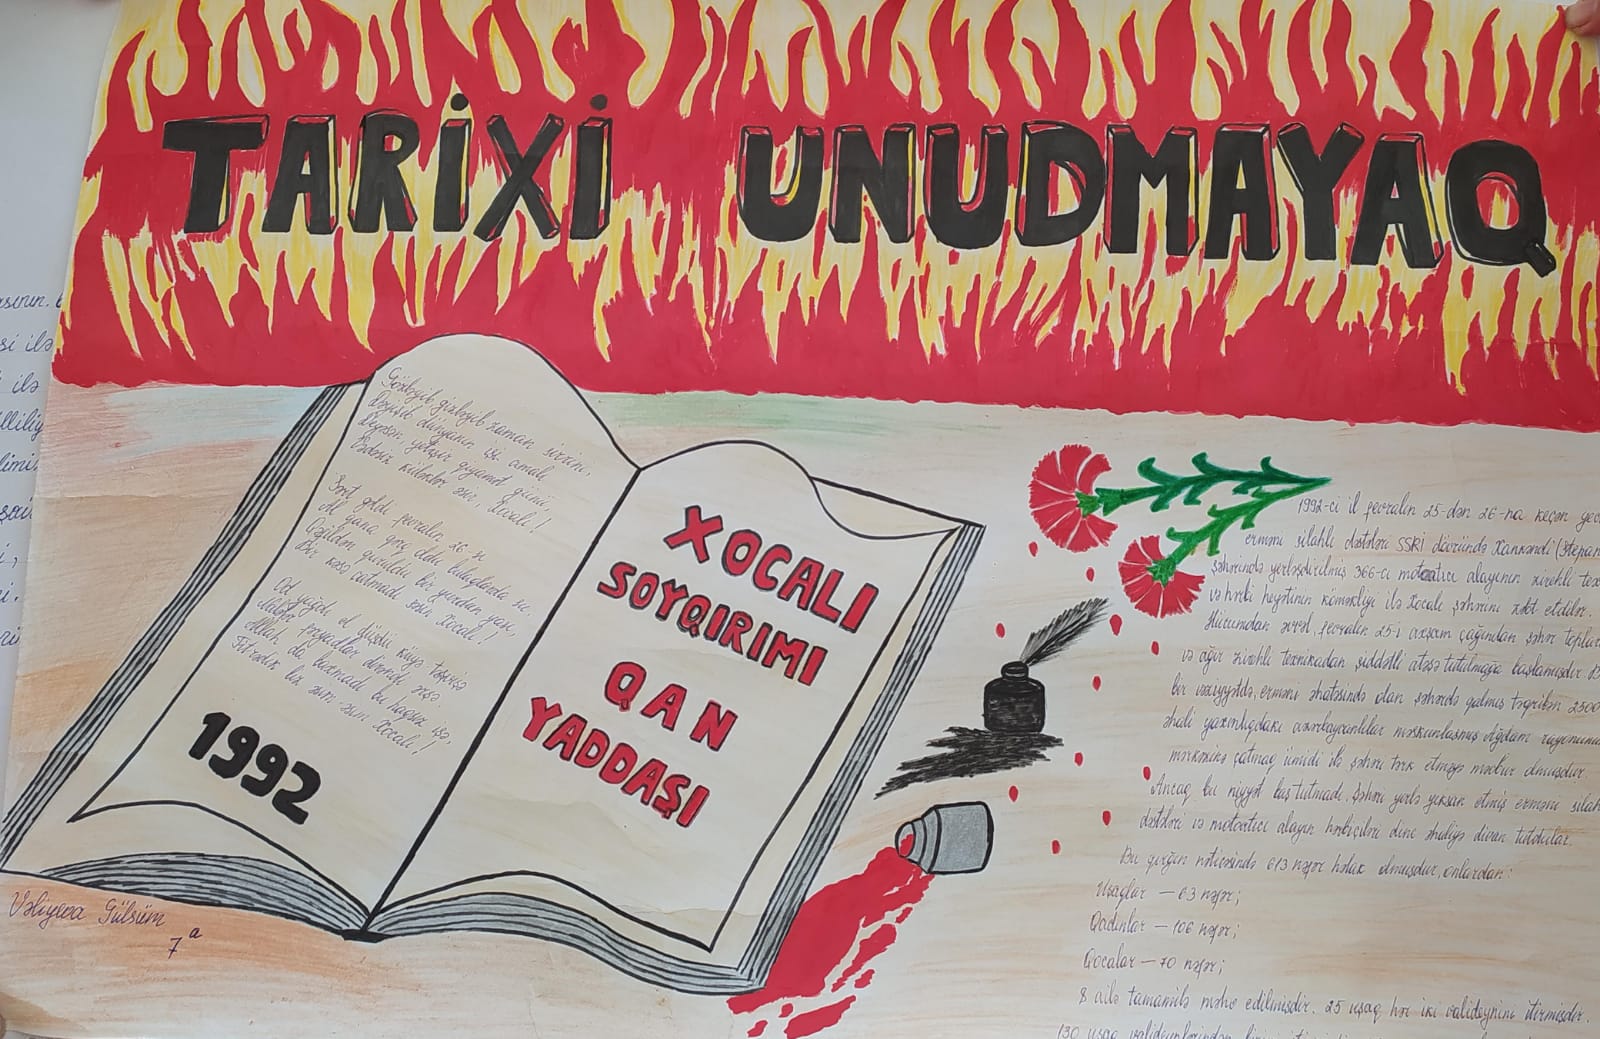 TARİXİ UNUDMAYAQ
Gözləyib gizləyib zaman sirrini,
Dəyişib dünyanın işi amalı
Deyəsən, yetişir qiyamət günü,
küləklər əsir, Xocalı!
gəldi fevralın 26-sı
Al qana qərq oldu bulaqlarda su,
quruldu bir yurdan yası,
Bir kəsə çatmadı səsin Xocalı!
Od yağdı, el düşdü küyə təşvişə
fəryadlar dirəndi ərşə.
Allah da baxmadı bu haqsız işə,
Titrədik biz zum-zum Xocalı!
1992
XOCALI
SOYQIRIMI
QAN
YADDAŞI
Vəliyeva Gülsüm
7a
1992-ci il fevralın 25-dən 26-na keçən
erməni silahlı dəstələri SSRİ dövründə Xankəndi
şəhərində yerləşdirilmiş 366-cı motoatıcı alayının zirehli
və hərbi heyətinin köməkliyi ilə Xocalı şəhərini zəbt etdilər.
Hücumdan əvvəl, fevralın 25-i axşam çağından şəhər
və ağır zirehli texnikadan şiddətli atəşə tutulmağa başlamışdır.
bir vəziyyətdə, erməni əhatəsində olan şəhərdə qalmış təqribən 2500
əhali yaxınlıqdakı azərbaycanlılar məskunlaşmış Ağdam
mərkəzinə çatmaq ümidi ilə şəhəri tərk etməyə məcbur olmuşdur.
Ancaq bu niyyət baş tutmadı. Şəhəri yerlə yeksan etmiş erməni
dəstələri və motoatıcı alayın hərbiçiləri dinc əhaliyə divan tutdular.
Bu qırğın nəticəsində 613 nəfər həlak olmuşdur, onlardan:
Uşaqlar – 63 nəfər;
Qadınlar – 106 nəfər;
Qocalar – 70 nəfər;
8 ailə tamamilə məhv edilmişdir. 25 uşaq hər iki valideynini itirmişdir.
130 uşaq valideynlərindən birini